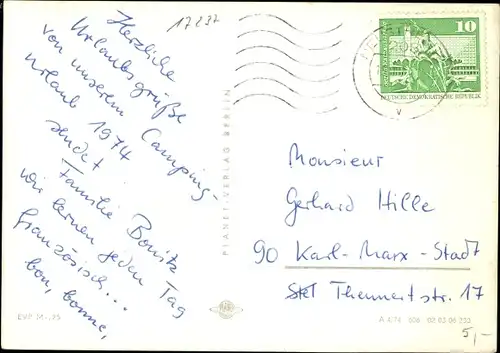 17237
Herzliche
Urlaubsgrüße
von unserem Camping-
Urlaub 1974
sendet
Familie Bonitz
wir lernen jeden Tag
französisch...
bon, bonne,
EVP M -,25
PLANET-VERLAG BERLIN
10
DEUTSCHE DEMOKRATISCHE REPUBLIK
Monsieur
Gerhard Hille
90 Karl-Marx-Stadt
Thennertstr. 17
A 4/74 506 02 03 06 233
5,-